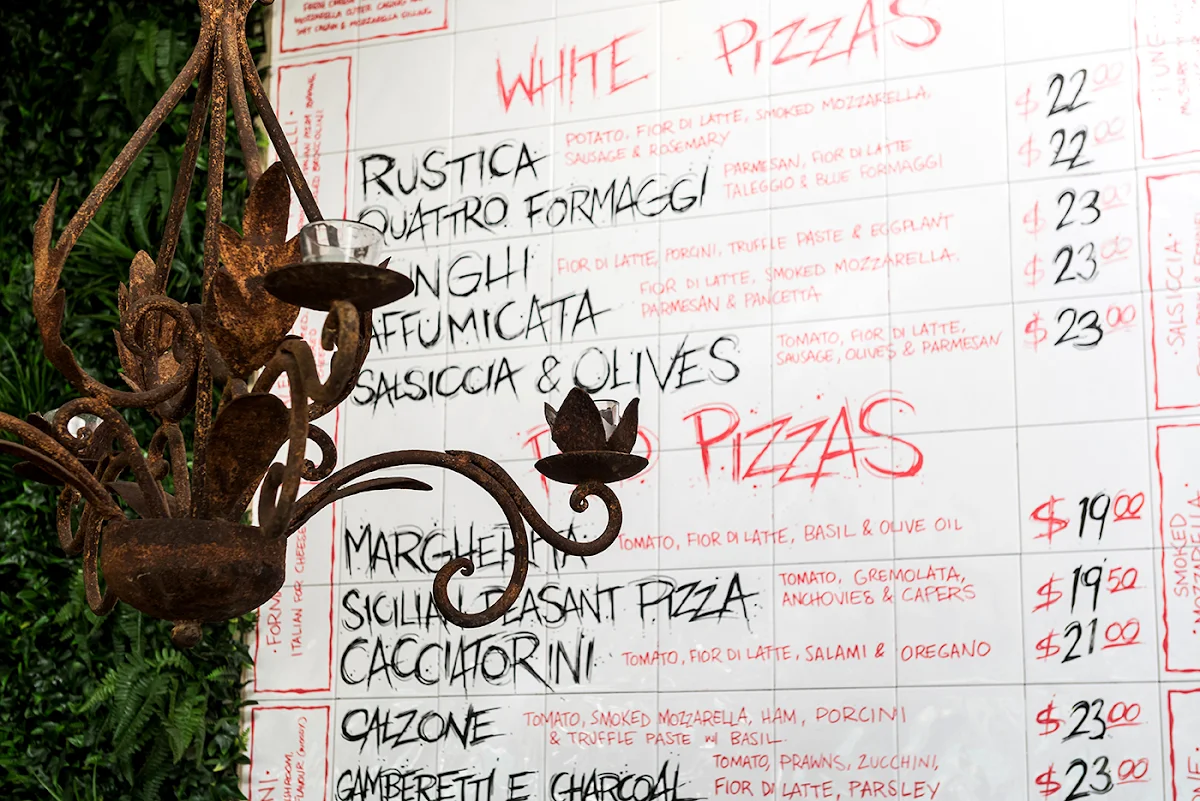 WHITE PIZZAS
RUSTICA POTATO, FIOR DI LATTE, SMOKED MOZZARELLA, $22.00
SAUSAGE & ROSEMARY
QUATTRO FORMAGGI PARMESAN, FIOR DI LATTE $22.00
TALEGGIO & BLUE FORMAGGI
NGHI FIOR DI LATTE, PORCINI, TRUFFLE PASTE & EGGPLANT $23.00
AFFUMICATA FIOR DI LATTE, SMOKED MOZZARELLA. $23.00
PARMESAN & PANCETTA
SALSICCIA & OLIVES TOMATO, FIOR DI LATTE, $23.00
SAUSAGE, OLIVES & PARMESAN
PIZZAS
MARGHERITA TOMATO, FIOR DI LATTE, BASIL & OLIVE OIL $19.00
SICILIAN PEASANT PIZZA TOMATO, GREMOLATA, $19.50
ANCHOVIES & CAPERS
CACCIATORINI TOMATO, FIOR DI LATTE, SALAMI & OREGANO $21.00
CALZONE TOMATO, SMOKED MOZZARELLA, HAM, PORCINI $23.00
& TRUFFLE PASTE W/ BASIL.
GAMBERETTI E CHARCOAL TOMATO, PRAWNS, ZUCCHINI, $23.00
FIOR DI LATTE, PARSLEY
ITALIAN FOR CHEESE
SALSICCIA
SMOKED